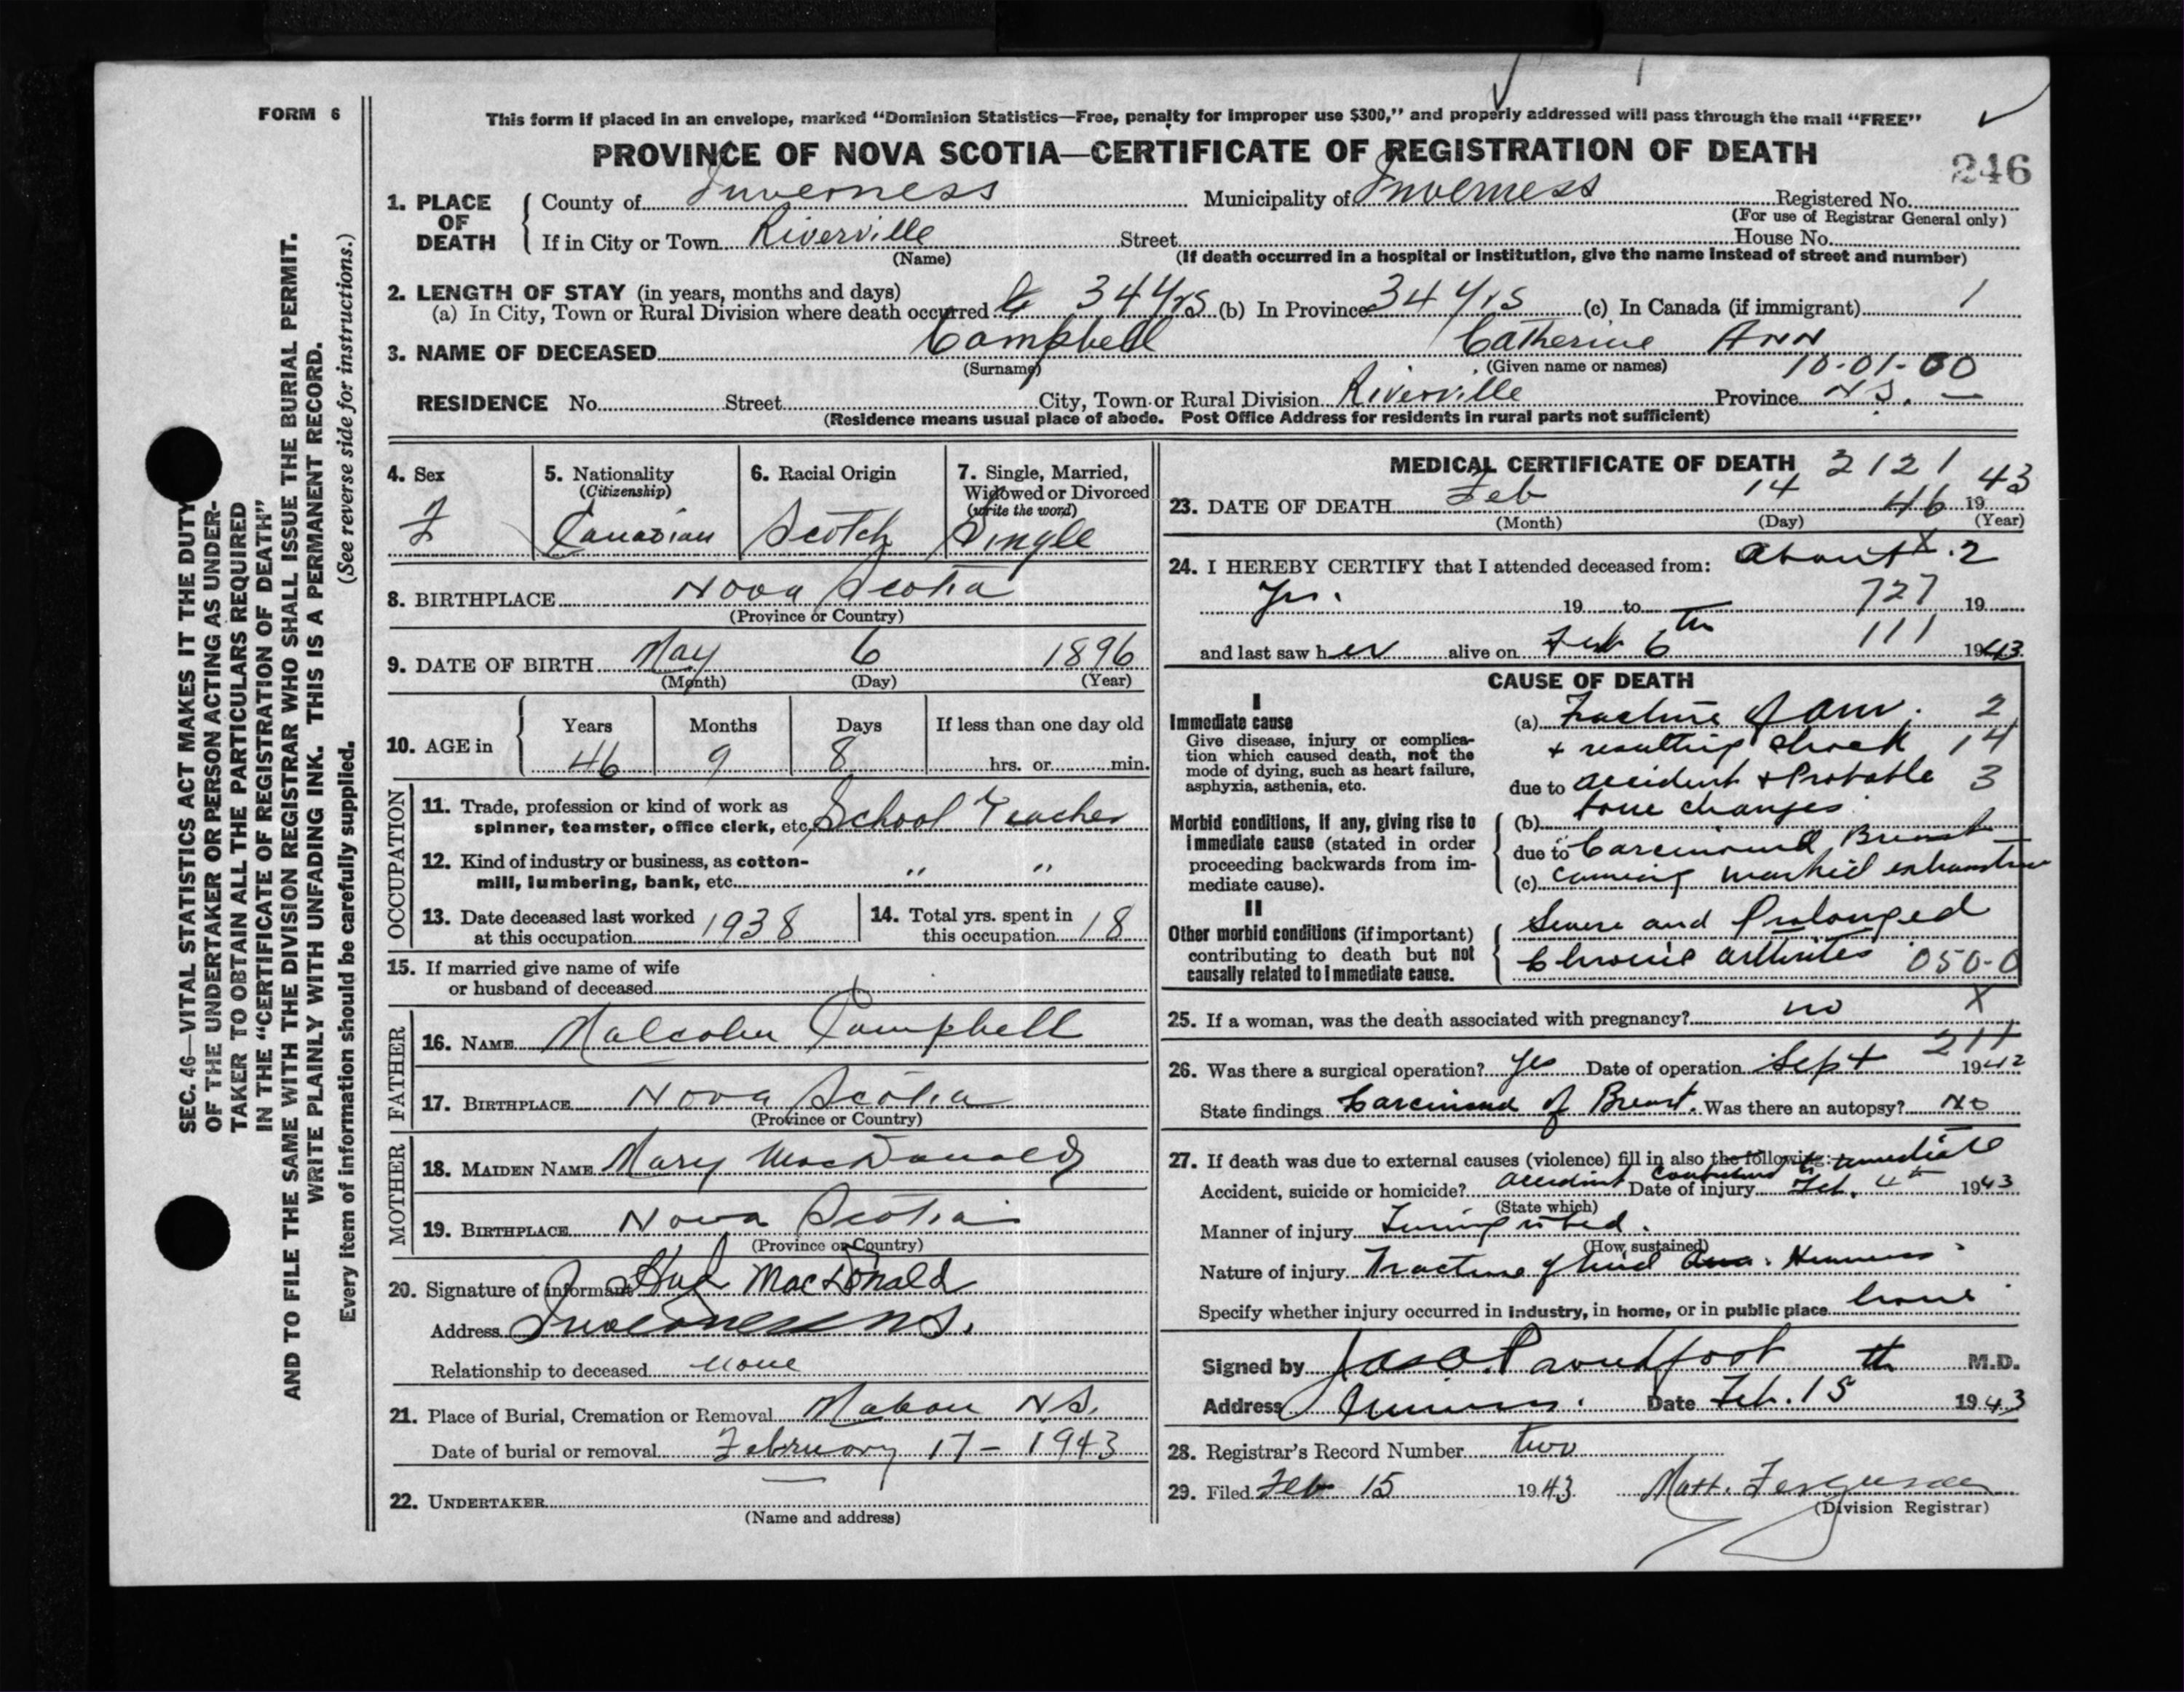 FORM 6
This form if placed in an envelope, marked "Dominion Statistics—Free, penalty for improper use $300," and properly addressed will pass through the mail "FREE"
PROVINCE OF NOVA SCOTIA—CERTIFICATE OF REGISTRATION OF DEATH
246
1. PLACE OF DEATH County of Inverness Municipality of Inverness Registered No.
(For use of Registrar General only)
If in City or Town Riverville Street House No.
(Name) (If death occurred in a hospital or institution, give the name instead of street and number)
2. LENGTH OF STAY (in years, months and days)
(a) In City, Town or Rural Division where death occurred 34 Yrs (b) In Province 34 Yrs (c) In Canada (if immigrant) 1
3. NAME OF DECEASED Campbell Catherine Ann
(Surname) (Given name or names) 10-01-00
RESIDENCE No. Street City, Town or Rural Division Riverville Province N.S. —
(Residence means usual place of abode. Post Office Address for residents in rural parts not sufficient)
4. Sex F
5. Nationality (Citizenship) Canadian
6. Racial Origin Scotch
7. Single, Married, Widowed or Divorced (write the word) Single
8. BIRTHPLACE Nova Scotia
(Province or Country)
9. DATE OF BIRTH May 6 1896
(Month) (Day) (Year)
10. AGE in Years 46 Months 9 Days 8 If less than one day old hrs. or min.
OCCUPATION
11. Trade, profession or kind of work as spinner, teamster, office clerk, etc. School Teacher
12. Kind of industry or business, as cotton-mill, lumbering, bank, etc. " "
13. Date deceased last worked at this occupation 1938
14. Total yrs. spent in this occupation 18
15. If married give name of wife or husband of deceased
FATHER
16. NAME Malcolm Campbell
17. BIRTHPLACE Nova Scotia
(Province or Country)
MOTHER
18. MAIDEN NAME Mary MacDonald
19. BIRTHPLACE Nova Scotia
(Province or Country)
20. Signature of informant Hugh MacDonald
Address Inverness N.S.
Relationship to deceased none
21. Place of Burial, Cremation or Removal Mabou N.S.
Date of burial or removal February 17 - 1943
22. UNDERTAKER —
(Name and address)
MEDICAL CERTIFICATE OF DEATH 2121
23. DATE OF DEATH Feb 14 46 19 43
(Month) (Day) (Year)
24. I HEREBY CERTIFY that I attended deceased from: About 2
Yrs. 19 to 727 19
and last saw her alive on Feb 6th 111 1943
CAUSE OF DEATH
I
Immediate cause
Give disease, injury or complication which caused death, not the mode of dying, such as heart failure, asphyxia, asthenia, etc.
(a) Fracture of arm. 2
+ resulting shock 14
due to accident + Probable 3
bone changes
Morbid conditions, if any, giving rise to immediate cause (stated in order proceeding backwards from immediate cause).
(b)
due to Carcinoma of Breast
(c) causing marked exhaustion
II
Other morbid conditions (if important) contributing to death but not causally related to immediate cause.
Severe and Prolonged
Chronic arthritis 050-0
25. If a woman, was the death associated with pregnancy? no X
26. Was there a surgical operation? yes Date of operation Sept 211 1942
State findings Carcinoma of Breast. Was there an autopsy? No
27. If death was due to external causes (violence) fill in also the following: immediate
Accident, suicide or homicide? accident contributed to Date of injury Feb. 4th 1943
(State which)
Manner of injury Turning in bed.
(How sustained)
Nature of injury Fracture of Humerus
Specify whether injury occurred in industry, in home, or in public place home
Signed by Jas. A. Proudfoot M.D.
Address Inverness. Date Feb. 15th 1943
28. Registrar's Record Number two
29. Filed Feb 15 1943 Matt. Ferguson
(Division Registrar)
SEC. 46—VITAL STATISTICS ACT MAKES IT THE DUTY
OF THE UNDERTAKER OR PERSON ACTING AS UNDER-
TAKER TO OBTAIN ALL THE PARTICULARS REQUIRED
IN THE "CERTIFICATE OF REGISTRATION OF DEATH"
AND TO FILE THE SAME WITH THE DIVISION REGISTRAR WHO SHALL ISSUE THE BURIAL PERMIT.
WRITE PLAINLY WITH UNFADING INK. THIS IS A PERMANENT RECORD.
Every item of information should be carefully supplied. (See reverse side for instructions.)